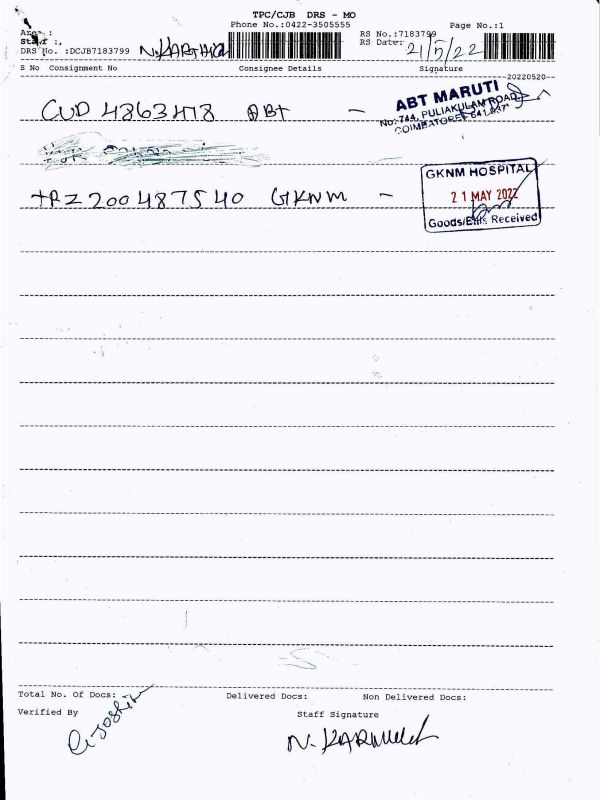 TPC/CJB DRS - MO
Phone No.:0422-3505555 Page No.:1
Area :
Staff :, RS No.:7183799
DRS No. :DCJB7183799 N.KARTHICK RS Date: 21/5/22
S No Consignment No Consignee Details Signature
20220520
CUD 4863478 ABT -
ABT MARUTI
No: 744, PULIAKULAM ROAD,
COIMBATORE
TRZ 200487540 GKNM -
GKNM HOSPITAL
21 MAY 2022
Goods/Bills Received
Total No. Of Docs: Delivered Docs: Non Delivered Docs:
Verified By Staff Signature